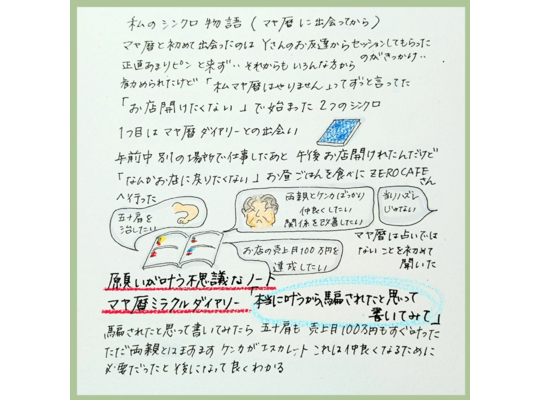 私のシンクロ物語(マヤ暦に出会ってから)
マヤ暦と初めて出会ったのは Yさんのお友達からセッションしてもらった
のがきっかけ‥
正直あまりピンと来ず‥それからもいろんな方から
勧められたけど「私マヤ暦はやりません」ってずっと言ってた
「お店開けたくない」で始まった2つのシンクロ
1つ目はマヤ暦ダイヤリーとの出会い
午前中別の場所で仕事したあと 午後お店開けれたんだけど
「なんかお店に戻りたくない」お昼ごはんを食べにZEROCAFEさん
へ行った
五十肩を
治したい
両親とケンカばっかり
仲良くしたい
関係を改善したい
当りハズレ
じゃない
お店の売上月100万円を
達成したい
マヤ暦は占いでは
ないことを初めて
聞いた
願いが叶う不思議なノート
マヤ暦ミラクルダイヤリー「本当に叶うから騙されたと思って
書いてみて」
騙されたと思って書いてみたら 五十肩も 売上月100万円もすぐ叶った
ただ両親とはますますケンカがエスカレート これは仲良くなるために
必要だったと後になって良くわかる